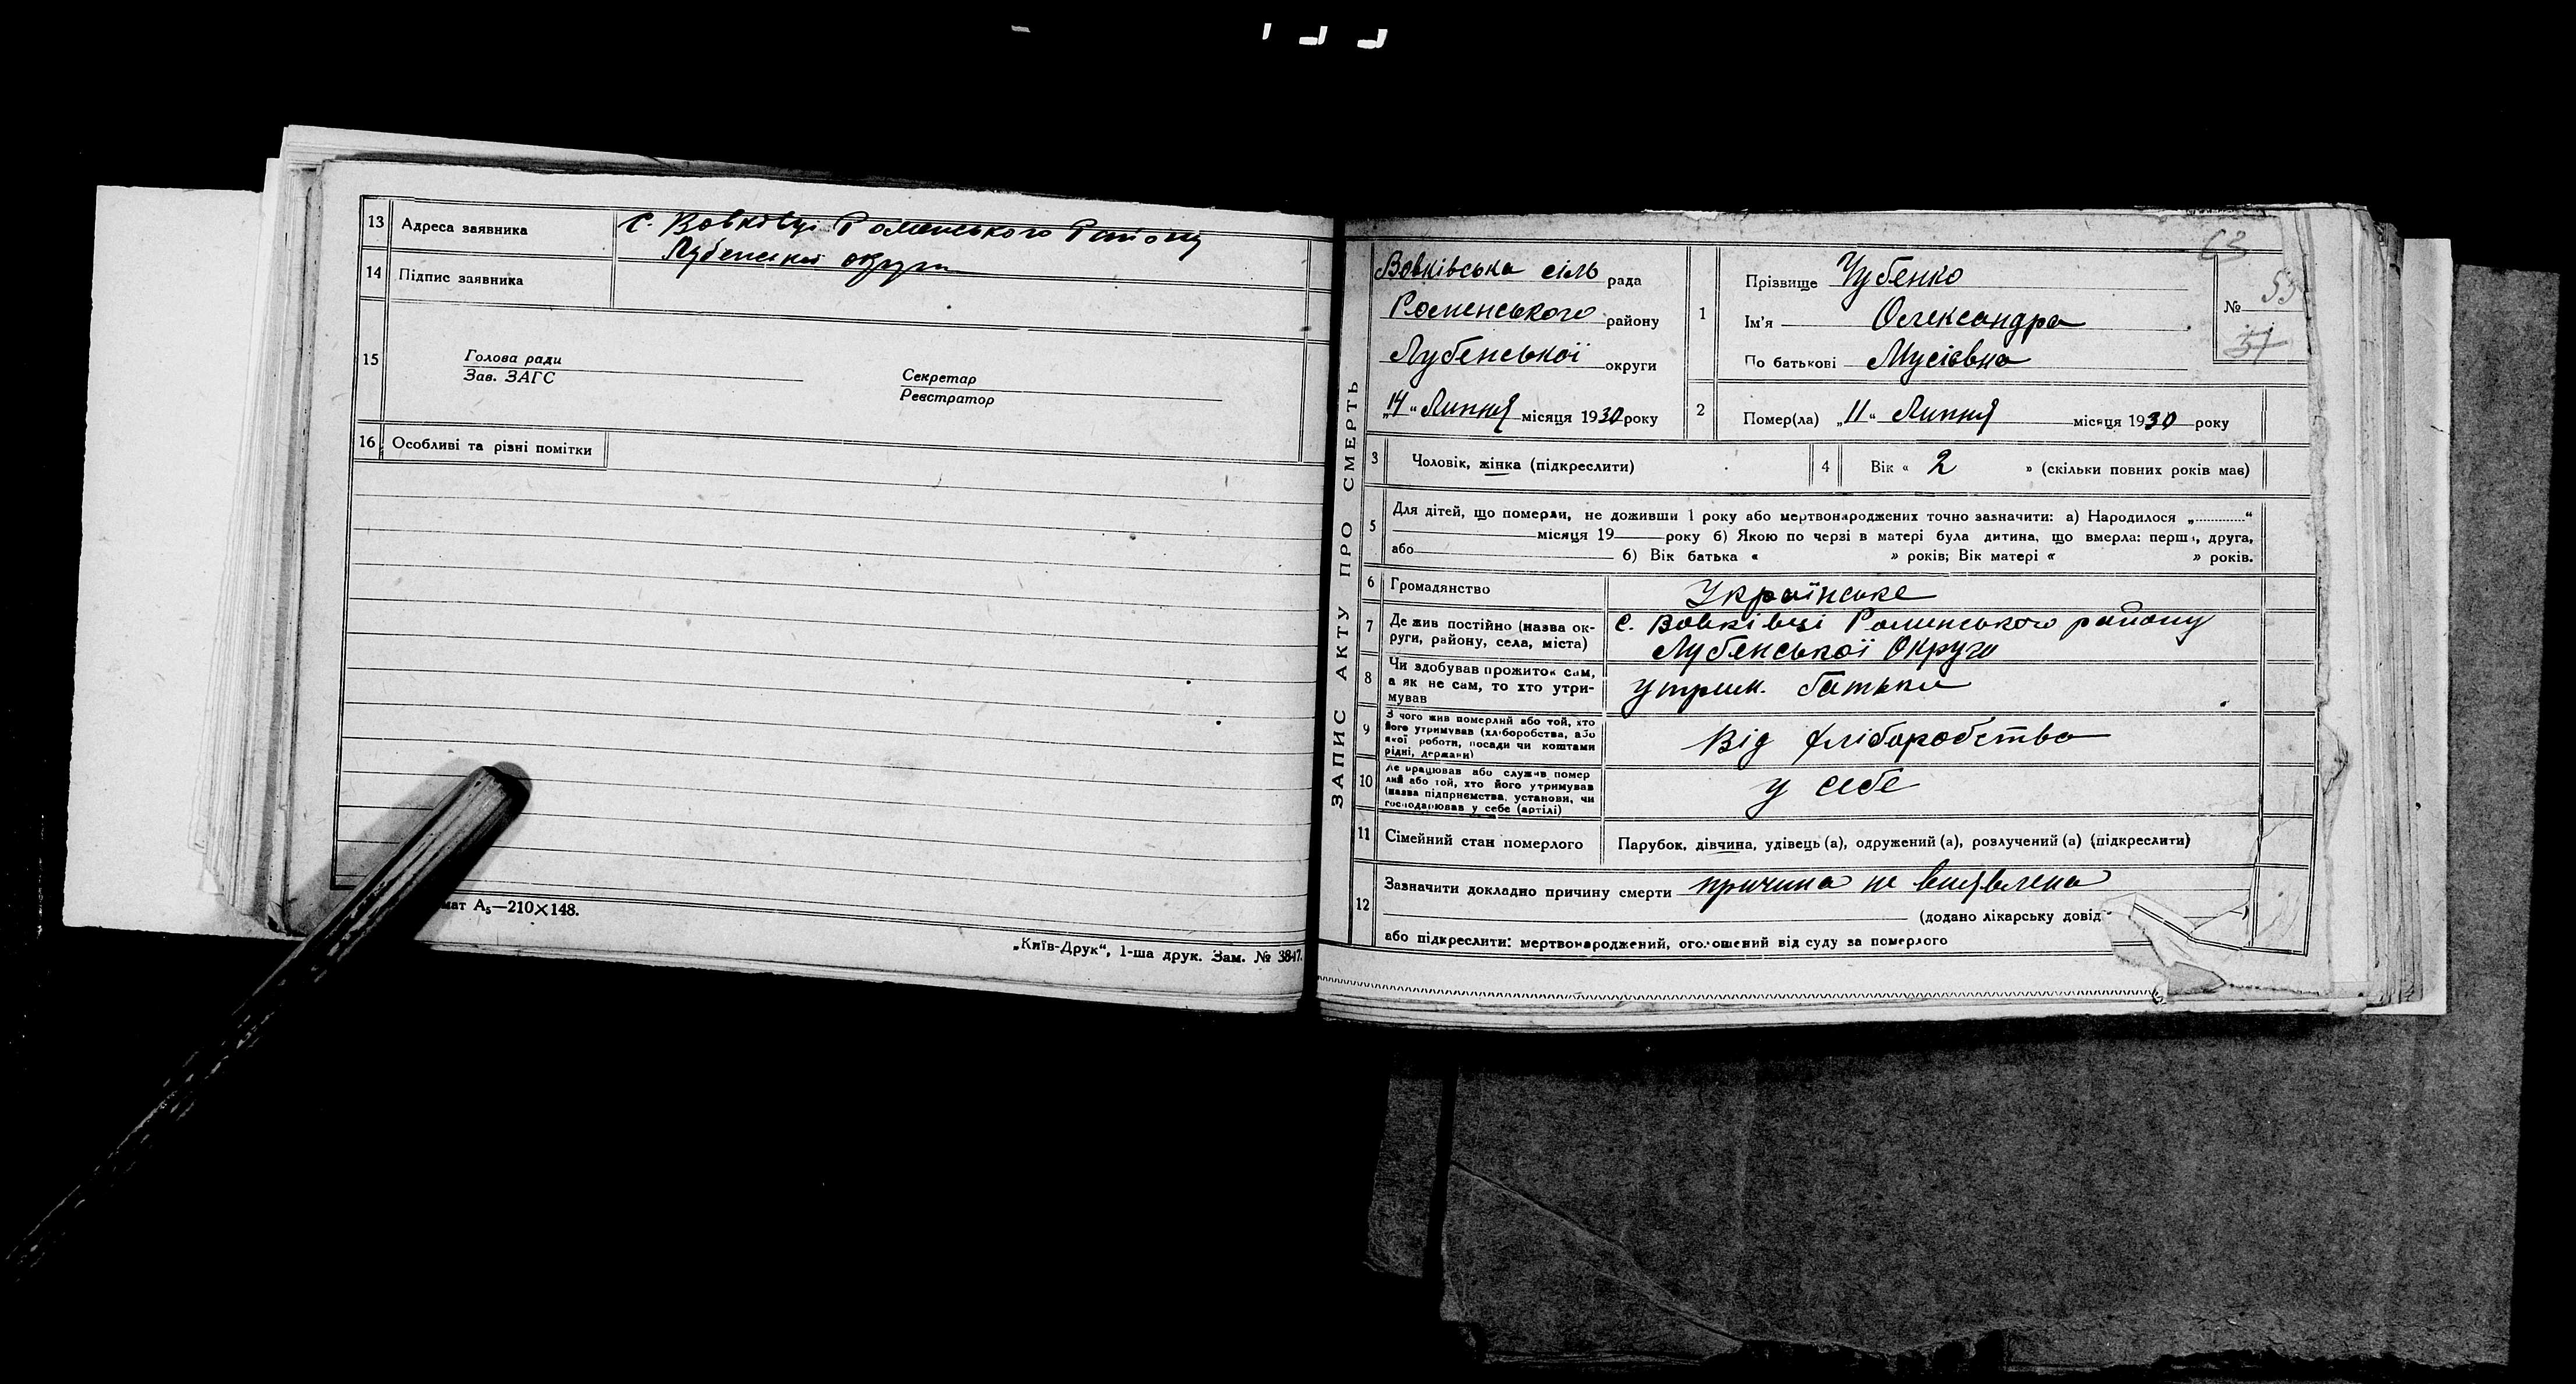 13 Адреса заявника с. Вовківці Роменського Району
Лубенської округи
14 Підпис заявника
15
Голова ради
Зав. ЗАГС
Секретар
Реєстратор
16 Особливі та різні помітки
мат А5—210×148.
„Київ-Друк“, 1-ша друк. Зам. № 3847.
ЗАПИС АКТУ ПРО СМЕРТЬ
63
Вовківська сіль рада
Роменського району
Лубенської округи
„14“ Липня місяця 1930 року
1 Прізвище Чубенко
Ім'я Олександра
По батькові Мусіївна
№ 55
37
2 Помер(ла) „11“ Липня місяця 1930 року
3 Чоловік, жінка (підкреслити)
4 Вік « 2 » (скільки повних років мав)
5 Для дітей, що померли, не доживши 1 року або мертвонароджених точно зазначити: а) Народилося „.............“
місяця 19 року б) Якою по черзі в матері була дитина, що вмерла: перша, друга,
або б) Вік батька « » років; Вік матері « » років.
6 Громадянство Українське
7 Де жив постійно (назва ок-
руги, району, села, міста)
с. Вовківці Роменського району
Лубенської Округи
8 Чи здобував прожиток сам,
а як не сам, то хто утри-
мував
утрим. батьки
9 З чого жив померлий або той, хто
його утримував (хліборобства, або
якої роботи, посади чи коштами
рідні, держави)
Від хліборобства
10 Де працював або служив помер
лий або той, хто його утримував
(назва підприємства, установи, чи
господарював у себе (артілі)
у себе
11 Сімейний стан померлого Парубок, дівчина, удівець (а), одружений (а), розлучений (а) (підкреслити)
12 Зазначити докладно причину смерти причина не виявлена
(додано лікарську довід
або підкреслити: мертвонароджений, оголошений від суду за померлого